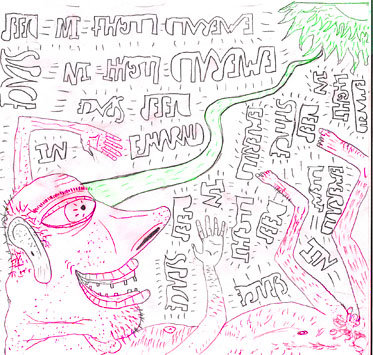 EMERALD LIGHT IN DEEP
SPACE
EMERALD LIGHT IN
DEEP SPACE
EMERALD
LIGHT
IN
DEEP
SPACE
EMERALD
IN
EMERALD
LIGHT
IN
DEEP
SPACE
EMERALD
LIGHT
IN
DEEP
SPACE